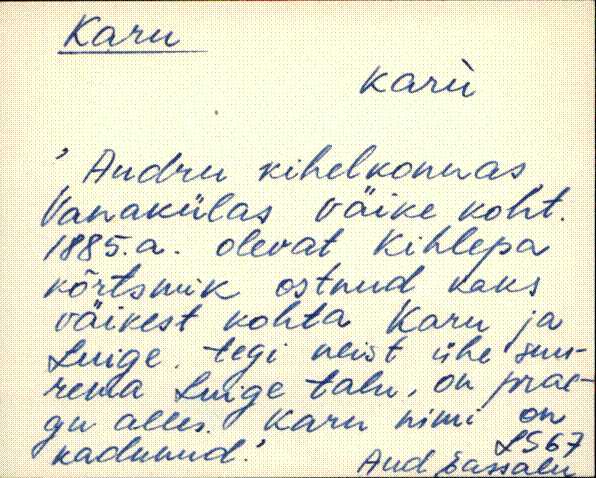 Karu
karù
' Audru kihelkonnas
Vanakülas väike koht.
1885.a. olevat Kihlepa
kõrtsmik ostnud kaks
väikest kohta Karu ja
Luige, tegi neist ühe suu-
rema Luige talu, on prae-
gu alles. Karu nimi on
kadunud.'
LS67
Aud Sassalu